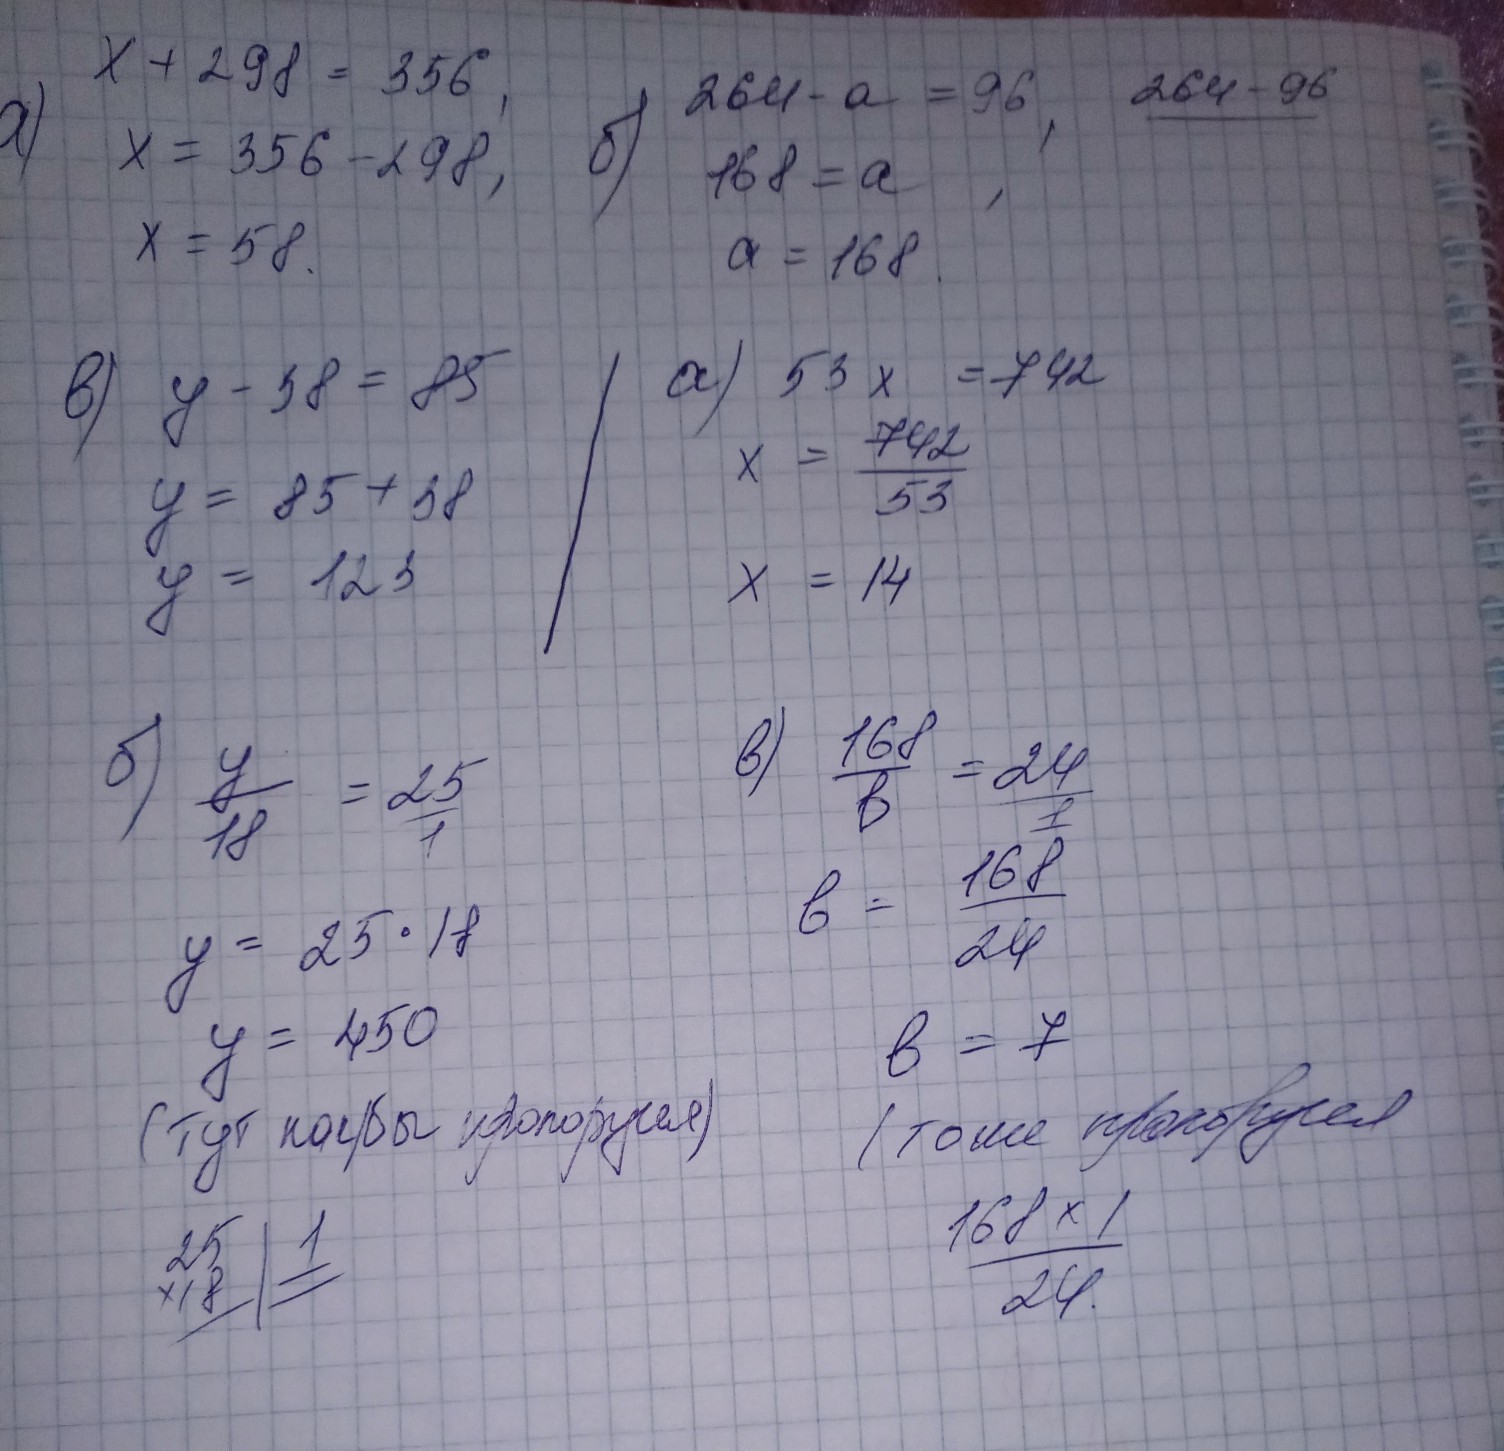 а) x + 298 = 356,
x = 356 - 298,
x = 58.
б) 264 - a = 96, 264 - 96
168 = a ,
a = 168.
в) y - 38 = 85
y = 85 + 38
y = 123
а) 53x = 742
x = 742/53
x = 14
б) y/18 = 25/1
y = 25 · 18
y = 450
(тут как бы пропорция)
25 × 18 | 1
в) 168/в = 24/1
в = 168/24
в = 7
(тоже пропорция
168 × 1 / 24.